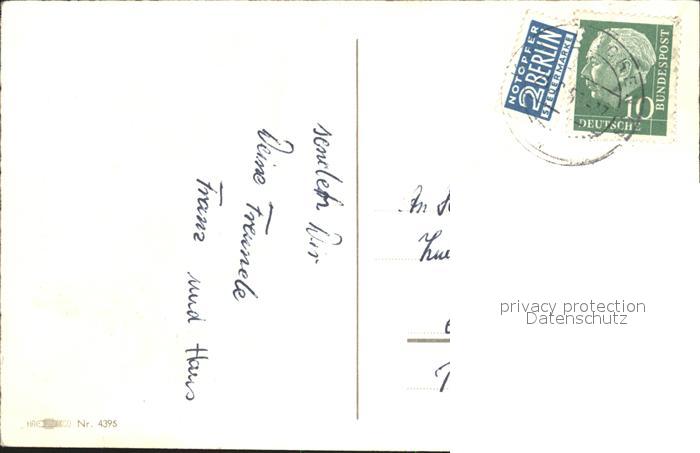 senden Dir
Deine Freunde
Franz und Hans
An
NOTOPFER
2 BERLIN
STEUERMARKE
10
BUNDESPOST
DEUTSCHE
privacy protection
Datenschutz
Nr. 4395